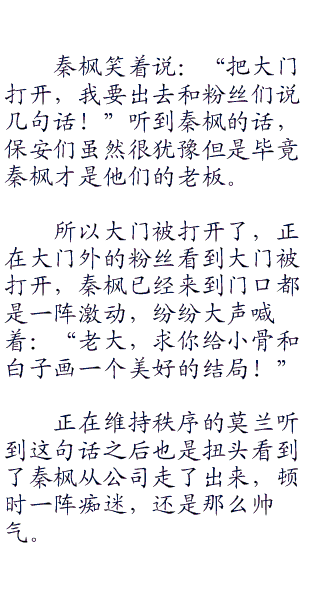 秦枫笑着说：“把大门
打开，我要出去和粉丝们说
几句话！”听到秦枫的话，
保安们虽然很犹豫但是毕竟
秦枫才是他们的老板。
所以大门被打开了，正
在大门外的粉丝看到大门被
打开，秦枫已经来到门口都
是一阵激动，纷纷大声喊
着：“老大，求你给小骨和
白子画一个美好的结局！”
正在维持秩序的莫兰听
到这句话之后也是扭头看到
了秦枫从公司走了出来，顿
时一阵痴迷，还是那么帅
气。